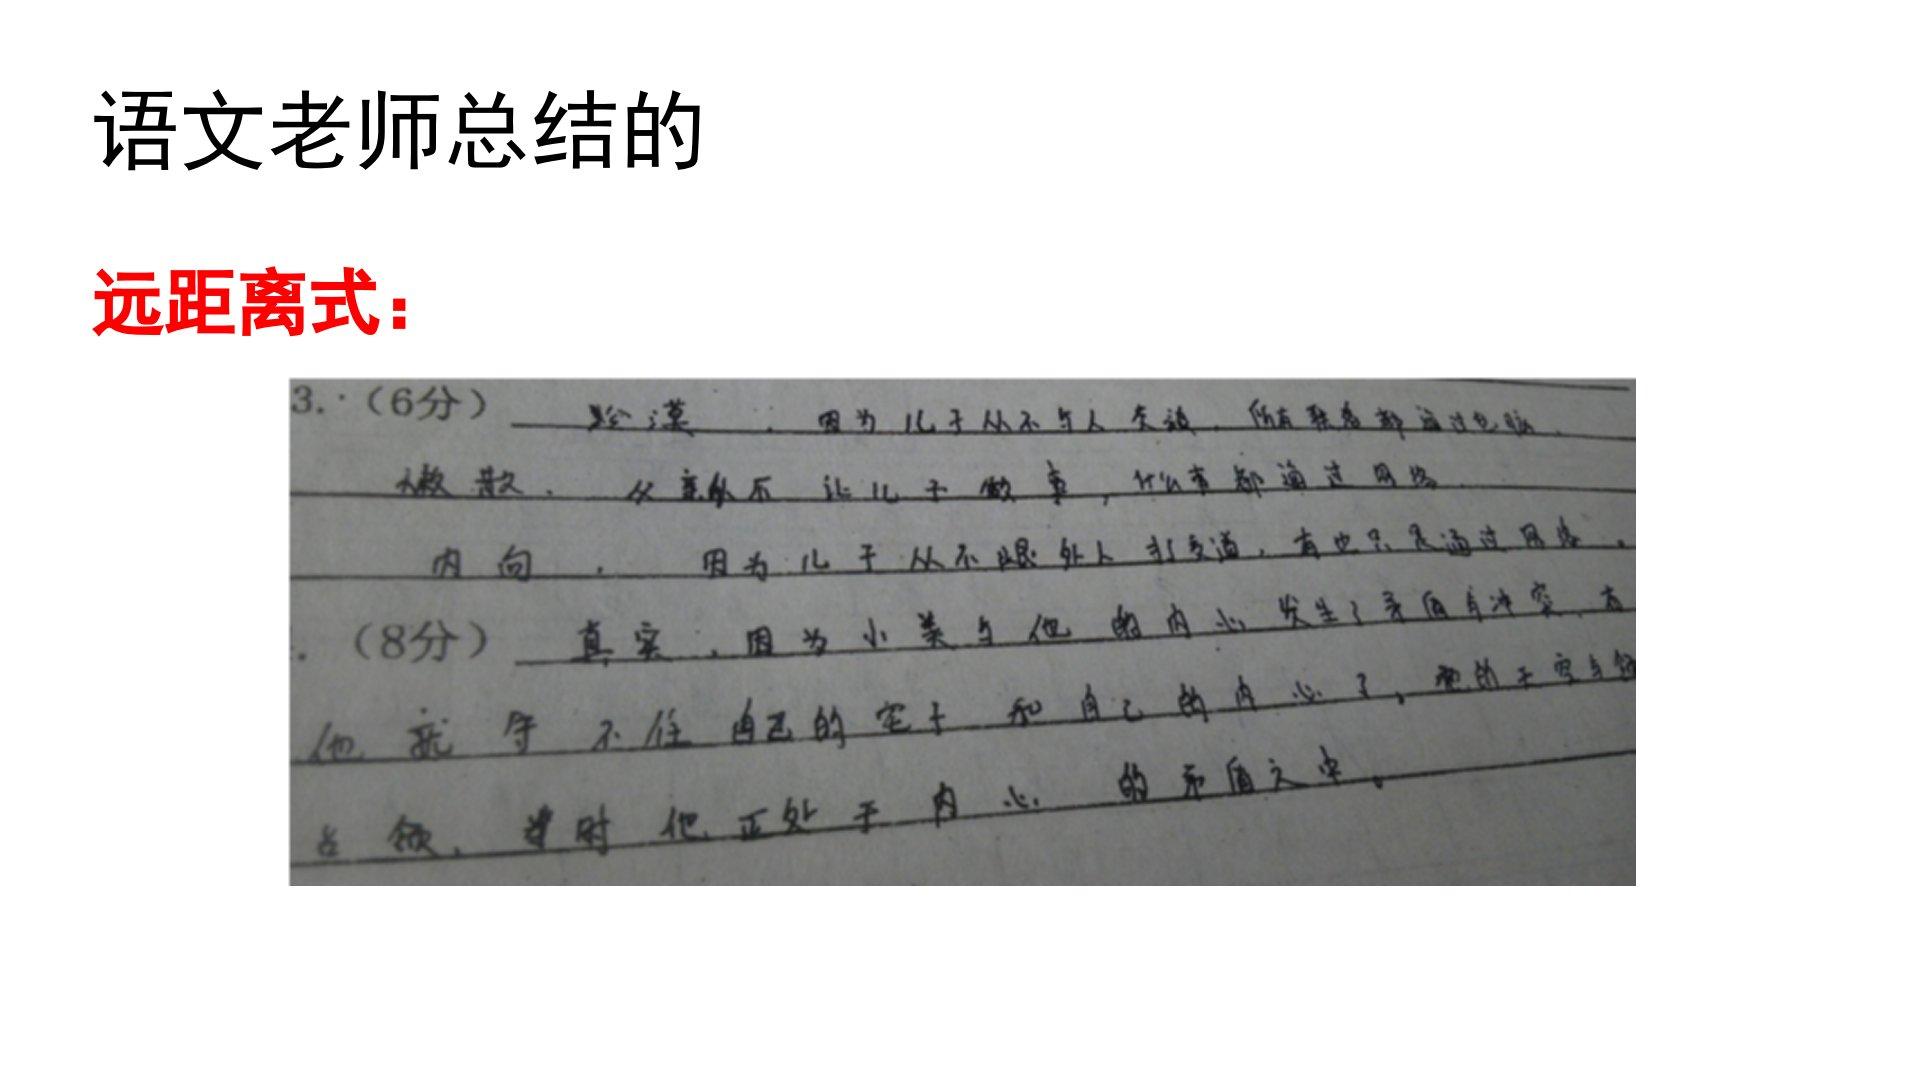 语文老师总结的
远距离式：
3.·（6分） 冷漠．因为儿子从不与人交谈．所有联络都通过电脑．
懒散．父亲从不让儿子做事，什么事都通过网络
内向．因为儿子从不跟外人打交道，有也只是通过网络。
.（8分） 真实．因为小美与他的内心发生了矛盾有冲突
他就守不住自己的宅子和自己的内心了，
当时他正处于内心的矛盾之中。